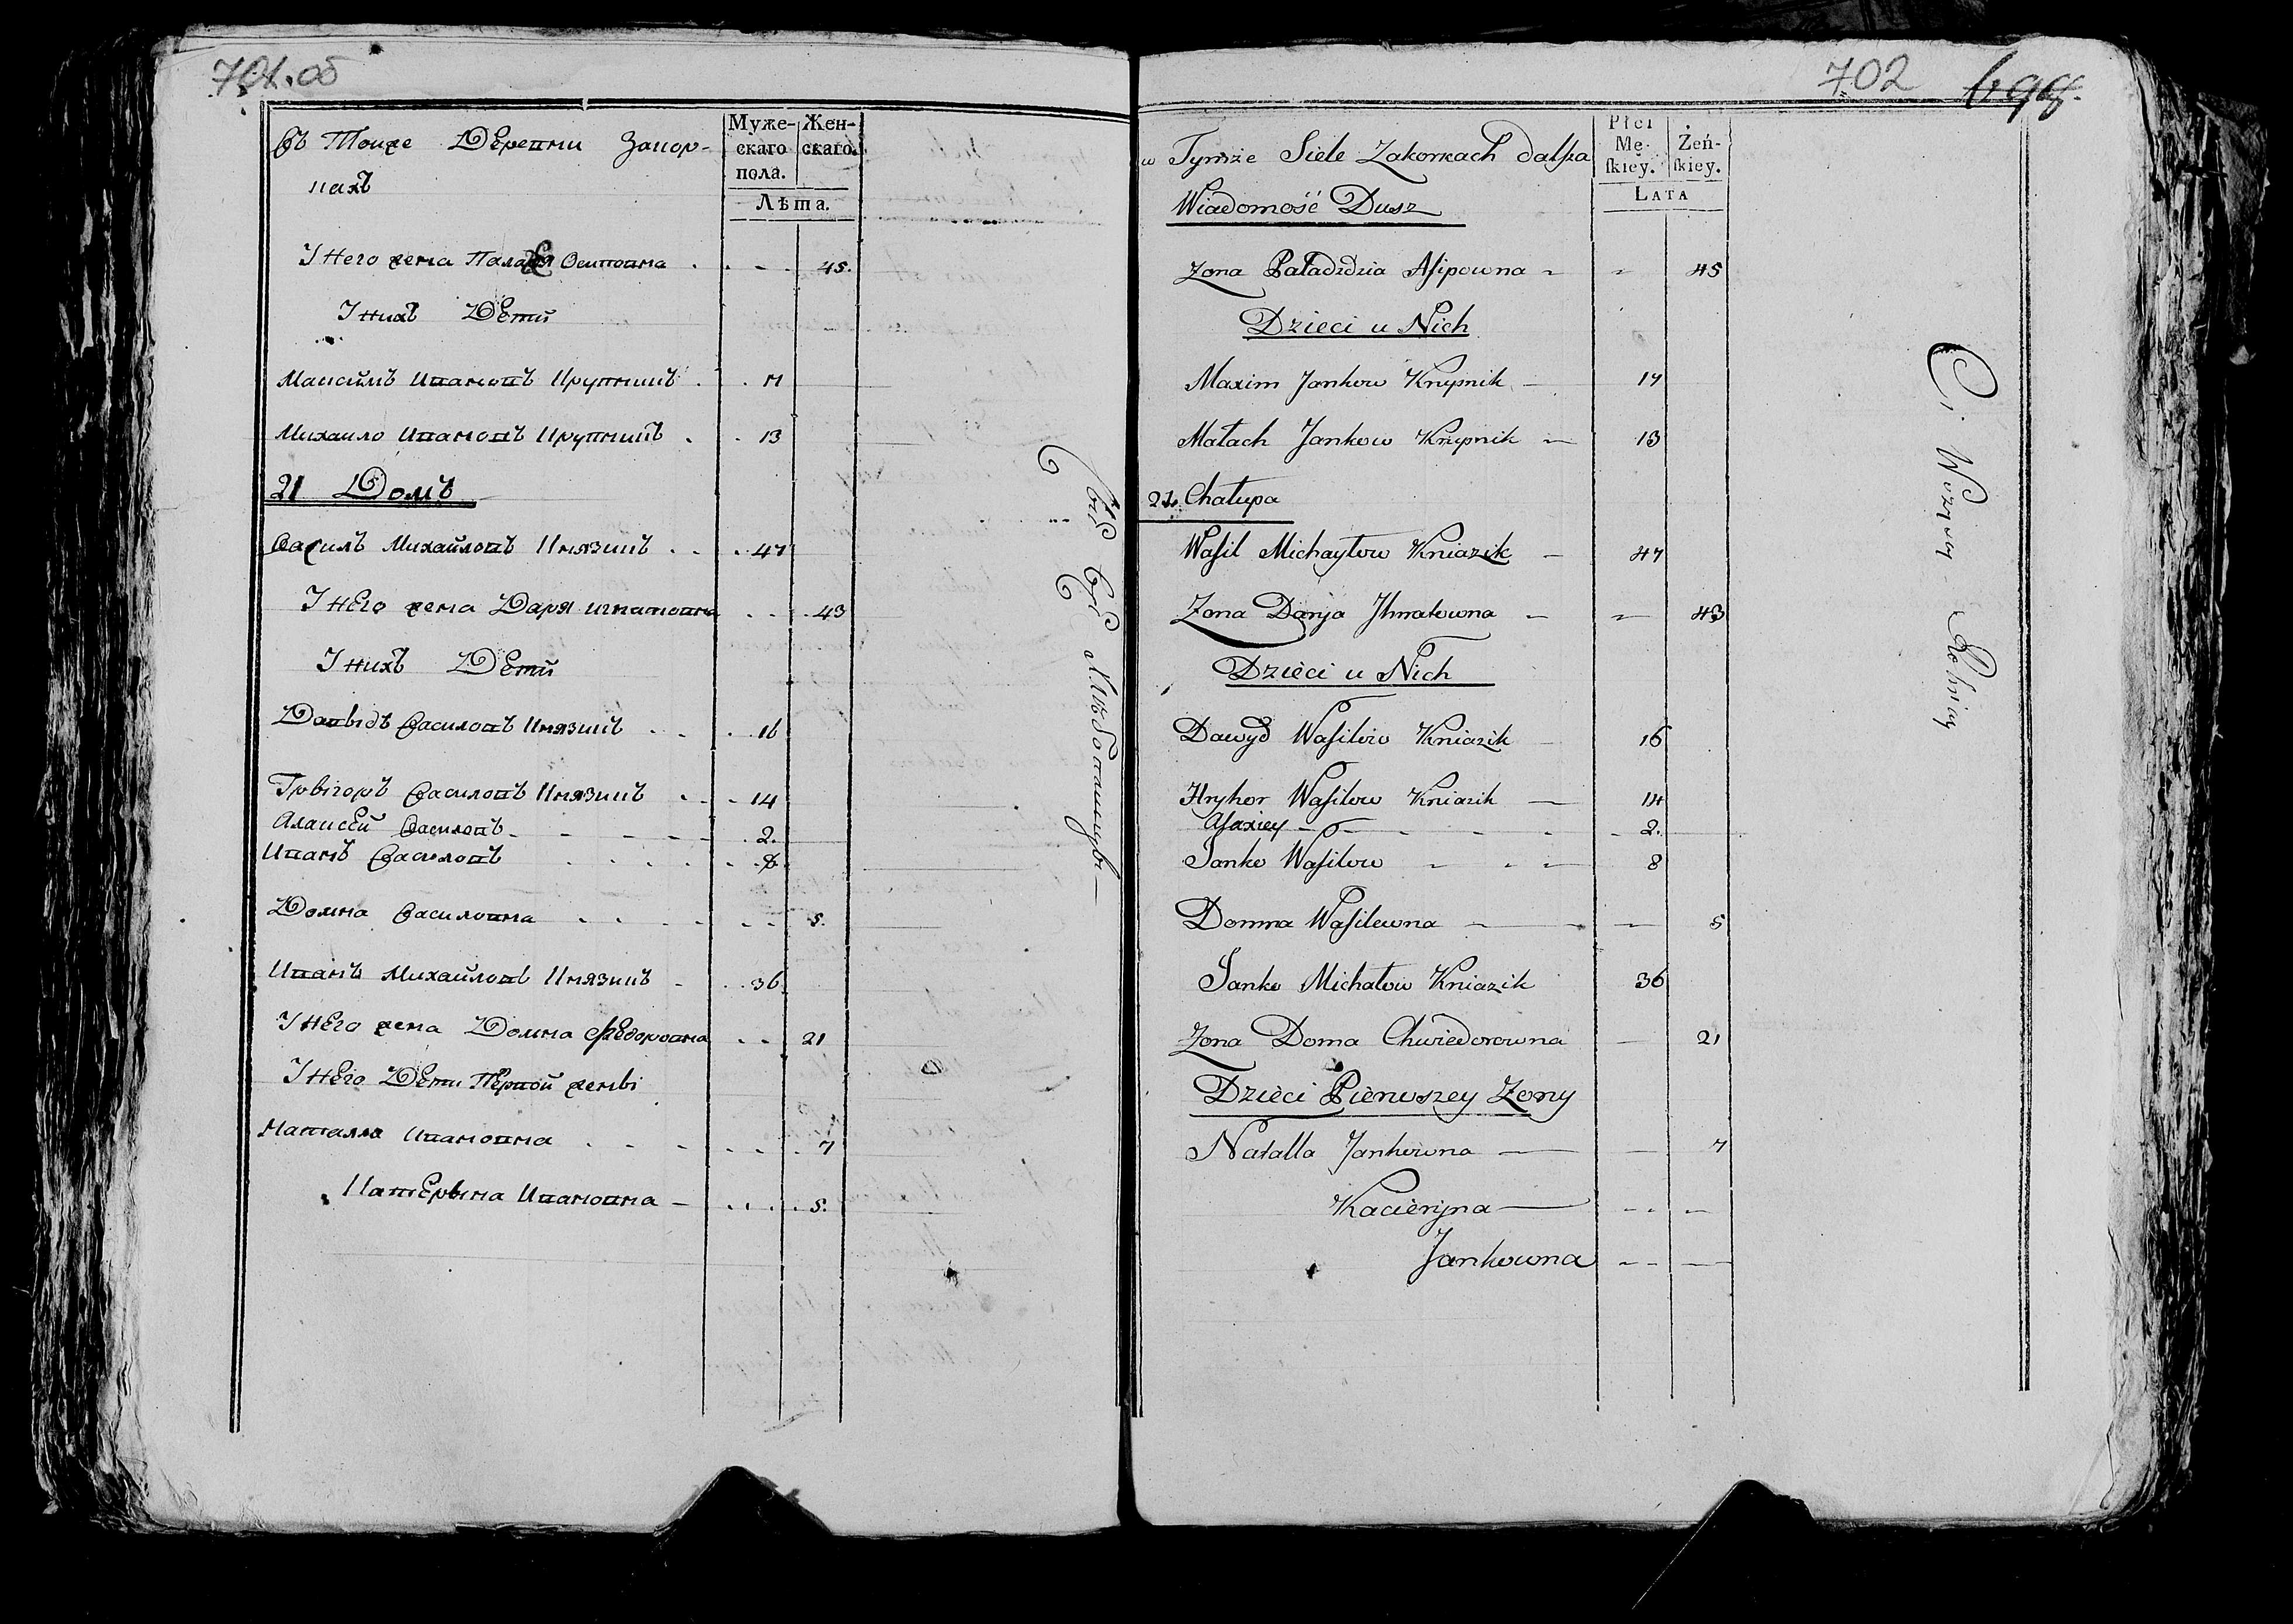 701.об
Въ Тойже Деревни Закор-
кахъ
Муже-
скаго
пола.
Жен-
скаго.
Лѣта.
У Него жена Осиповна 45.
У нихъ Дети
Максимъ Ивановъ Крупникъ 17
Михаило Ивановъ Крупникъ 13
21 Домъ
Василъ Михайловъ Князикъ 47
У Него жена Даря Игнатовна 43
У нихъ Дети
Давыдъ Василовъ Князикъ 16
Грыгоръ Василовъ Князикъ 14
Алаксей Василовъ 2.
Иванъ Василовъ 8
Домна Василовна 5.
Иванъ Михайловъ Князикъ 36
У Него жена Домна Федоровна 21
У Него Дети Первой жены
Наталла Ивановна 7
Катерына Ивановна 5.
702
w Tymże Siele Zakorkach dalsza
Wiadomość Dusz
Płci
Mę-
skiey.
Żeń-
skiey.
LATA
Zona Asipowna 45
Dzieci u Nich
Maxim Jankow Krupnik 17
Małach Jankow Krupnik 13
21. Chałupa
Wasil Michayłow Kniazik 47
Zona Darja Ihnatowna 43
Dzieci u Nich
Dawyd Wasilow Kniazik 16
Hryhor Wasilow Kniazik 14
Alaxiey 2.
Janko Wasilow 8
Domna Wasilewna 5
Janko Michałow Kniazik 36
Zona Doma Chwiedorowna 21
Dzieci Pierwszey Zony
Natalla Jankowna 7
Kacieryna
Jankowna
Ci Wszyscy Rolnicy